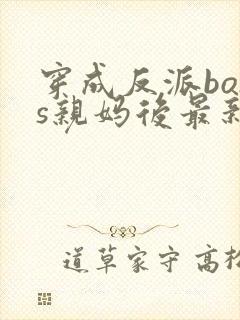 穿成反派bos
s親妈後最新
道草家守 高松